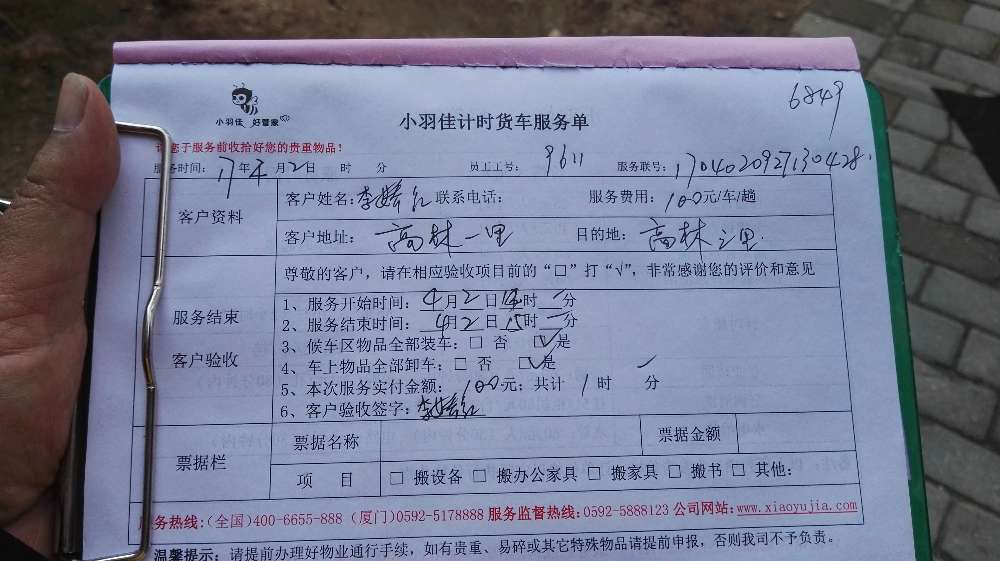 6849
小羽佳 好管家
小羽佳计时货车服务单
请您于服务前收拾好您的贵重物品!
服务时间: 17年4月2日 时 分 员工工号: 9611 服务联号: 1704020927130428
客户资料
客户姓名: 李 红 联系电话: 服务费用: 100元/车/趟
客户地址: 高林一里 目的地: 高林之里
服务结束
客户验收
尊敬的客户,请在相应验收项目前的“□”打“√”,非常感谢您的评价和意见
1、服务开始时间: 4月2日14时 一分
2、服务结束时间: 4月2日15时 一分
3、候车区物品全部装车: □ 否 ☑是
4、车上物品全部卸车: □ 否 ☑是
5、本次服务实付金额: 100元; 共计 1时 一分
6、客户验收签字: 李 红
票据栏
票据名称 票据金额
项 目 □ 搬设备 □ 搬办公家具 □ 搬家具 □ 搬书 □ 其他:
服务热线:(全国)400-6655-888 (厦门)0592-5178888 服务监督热线:0592-5888123 公司网站:www.xiaoyujia.com
温馨提示: 请提前办理好物业通行手续,如有贵重、易碎或其它特殊物品请提前申报,否则我司不予负责。